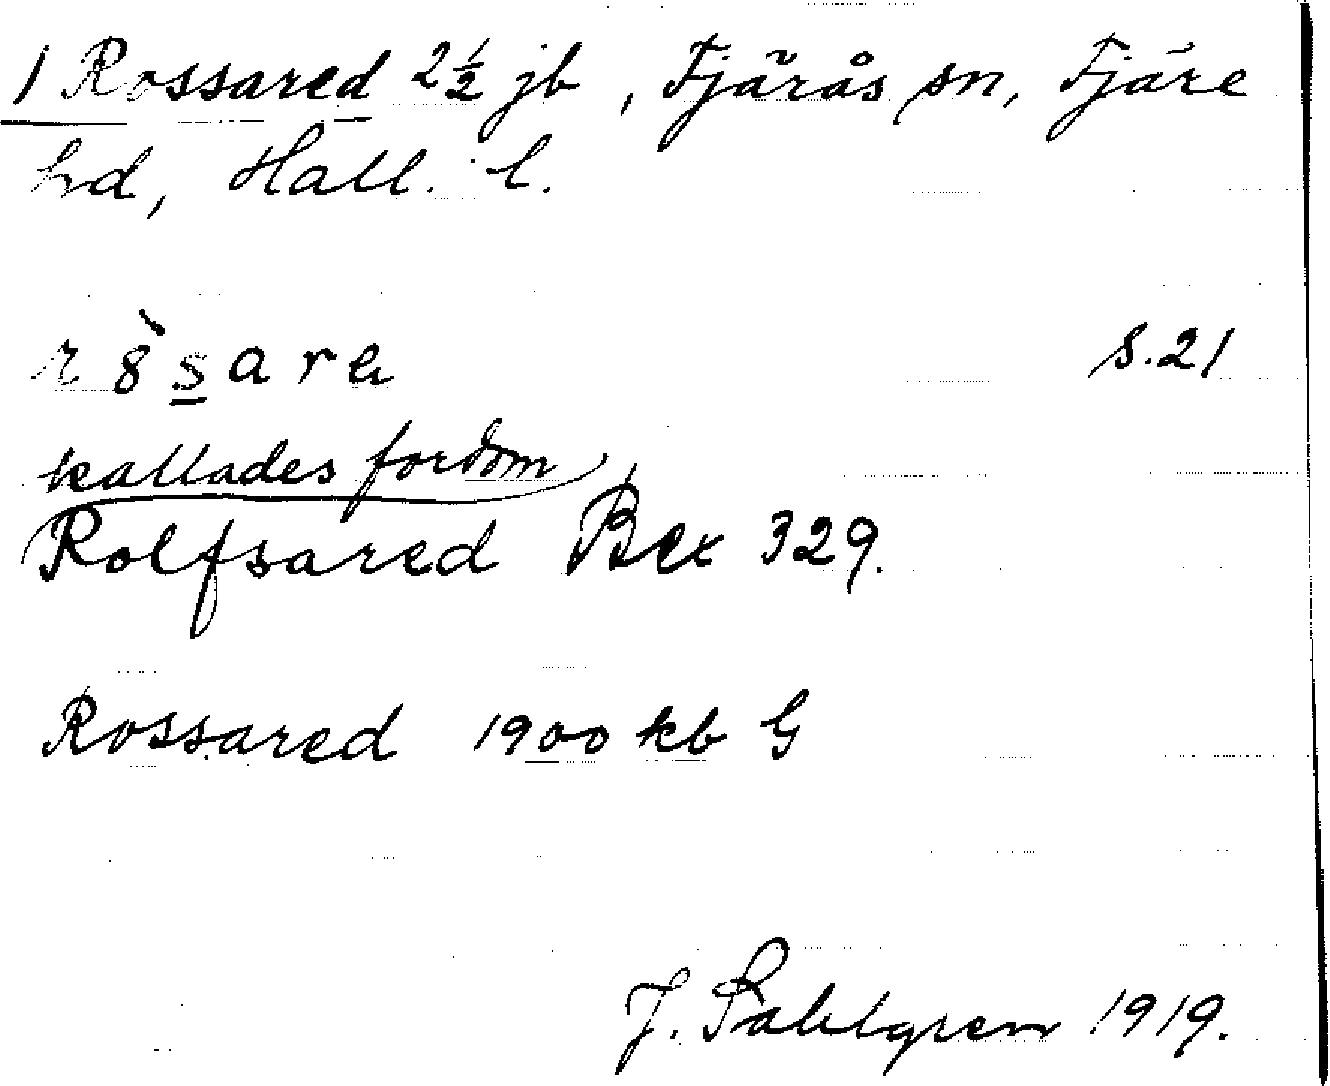 1 Rossared 2½ jb, Fjärås sn, Fjäre
hd, Hall. l.
S.21
kallades fordom
Rolfsared Bex 329.
Rossared 1900 kb G
J. Sahlgren 1919.